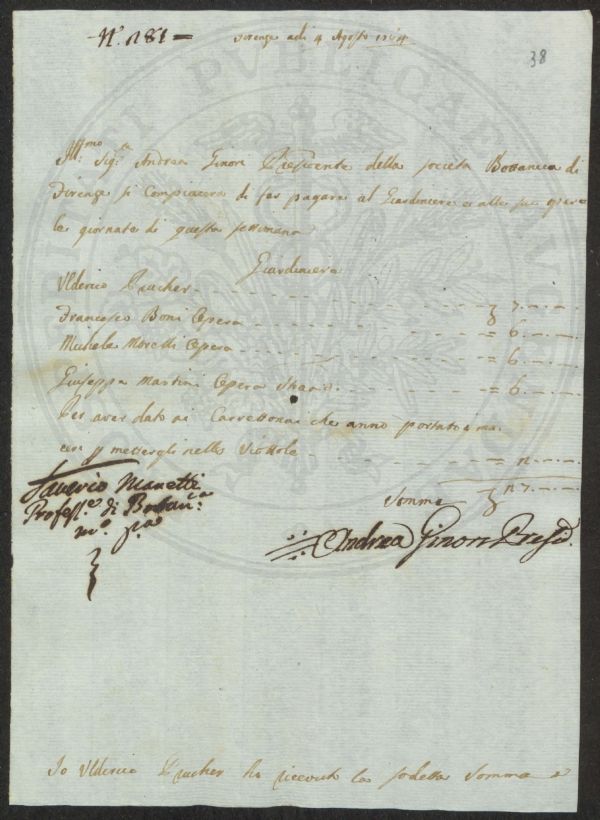 N.° 181 =
Firenze adi 4 Agosto 1764
38
Ill:mo Sig:re Andrea Ginori Presidente della società Bottanica di
Firenze si Compiacerà di far pagare al Giardiniere e alle sue opere
le giornate di questa settimana
Giardiniere
Ulderico Prucher - - - 7. - . -
Francesco Boni Opera - - - = 6. - . -
Michele Moretti Opera - - - = 6. - . -
Giuseppe Martini Opera - - - = 6. - . -
Per aver dato ai Carrettonai che anno portato i
mettergli nelle Viottole - - -
Somma
Saverio Manetti
Profess.e di Bottan.ca
m.o p.a
Andrea Ginori Presid.
Io Ulderico Prucher ho riceuto la sodetta Somma